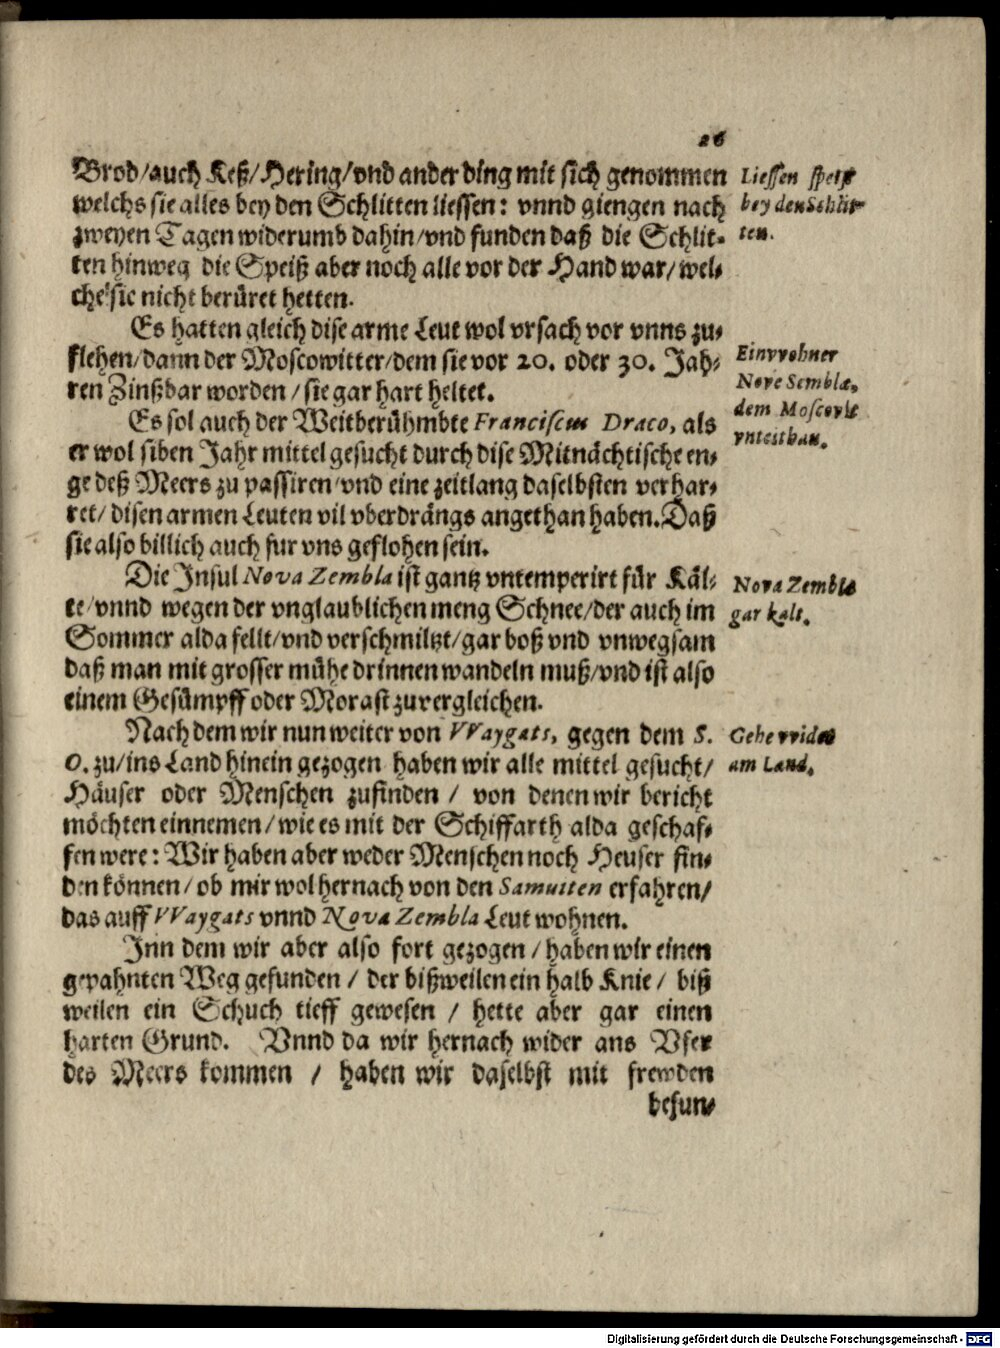 26
Brod/auch Keß/Hering/vnd ander ding mit sich genommen
welchs sie alles bey den Schlitten liessen: vnnd giengen nach
zweyen Tagen widerumb dahin/vnd funden daß die Schlit-
ten hinweg die Speiß aber noch alle vor der Hand war/wel-
che sie nicht berüret hetten.
Liessen speiß
bey den Schlit-
ten.
Es hatten gleich dise arme Leut wol vrsach vor vnns zu-
flehen/dann der Moscowitter/dem sie vor 20. oder 30. Jah-
ren Zinßbar worden/sie gar hart heltet.
Einvvohner
Nove Semblæ,
dem Moscovit
vnteit bau.
Es sol auch der Weitberühmbte Franciscus Draco, als
er wol siben Jahr mittel gesucht durch dise Mitnächtische en-
ge deß Meers zu passiren/vnd eine zeitlang daselbsten verhar-
ret/disen armen Leuten vil vberdrängs angethan haben. Daß
sie also billich auch fur vns geflohen sein.
Die Insul Nova Zembla ist gantz vntemperirt für Käl-
te/vnnd wegen der vnglaublichen meng Schnee/der auch im
Sommer alda fellt/vnd verschmiltzt/gar boß vnd vnwegsam
daß man mit grosser mühe drinnen wandeln muß/vnd ist also
einem Gesümpff oder Morast zuvergleichen.
Nova Zembla
gar kalt.
Nach dem wir nun weiter von VVaygats, gegen dem S.
O. zu/ins Land hinein gezogen haben wir alle mittel gesucht/
Häuser oder Menschen zufinden / von denen wir bericht
möchten einnemen/wie es mit der Schiffarth alda geschaf-
fen were: Wir haben aber weder Menschen noch Heuser fin-
den können/ob mir wol hernach von den Samuiten erfahren/
das auff VVaygats vnnd Nova Zembla Leut wohnen.
Gehe vvider
am Land.
Inn dem wir aber also fort gezogen/haben wir einen
gepahnten Weg gefunden / der bißweilen ein halb Knie / biß
weilen ein Schuch tieff gewesen / hette aber gar einen
harten Grund. Vnnd da wir hernach wider ans Vfer
des Meers kommen / haben wir daselbst mit frewden
befun-
Digitalisierung gefördert durch die Deutsche Forschungsgemeinschaft - DFG